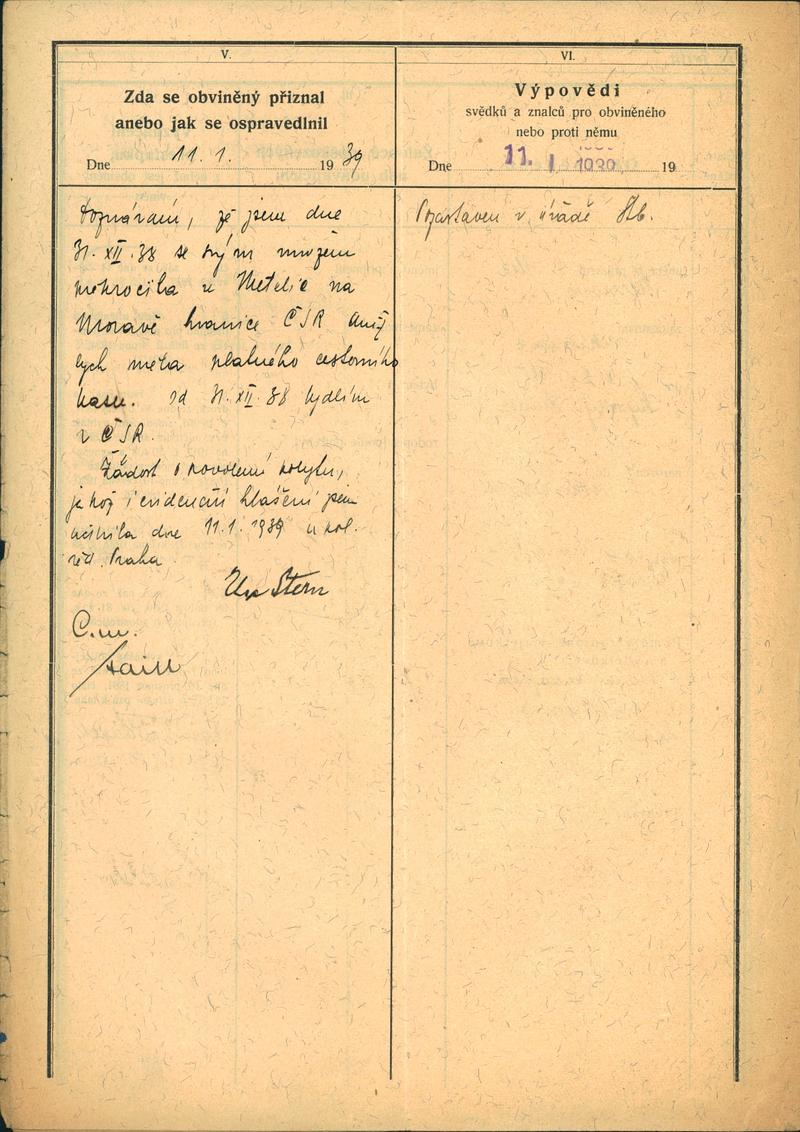 V.
Zda se obviněný přiznal
anebo jak se ospravedlnil
Dne 11. 1. 1939
doznávám, že jsem dne
31. XII. 38 se svým mužem
překročila u
na
Moravě hranice ČSR aniž
bych měla platného cestovního
pasu. Od 31. XII. 38 bydlím
v ČSR.
Žádost o povolení pobytu,
jakož i evidenční hlášení jsem
učinila dne 11. 1. 1939 u pol.
řed. Praha.
Stern
C.m.
VI.
Výpovědi
svědků a znalců pro obviněného
nebo proti němu
Dne 11. I. 1939 19
v úřadě